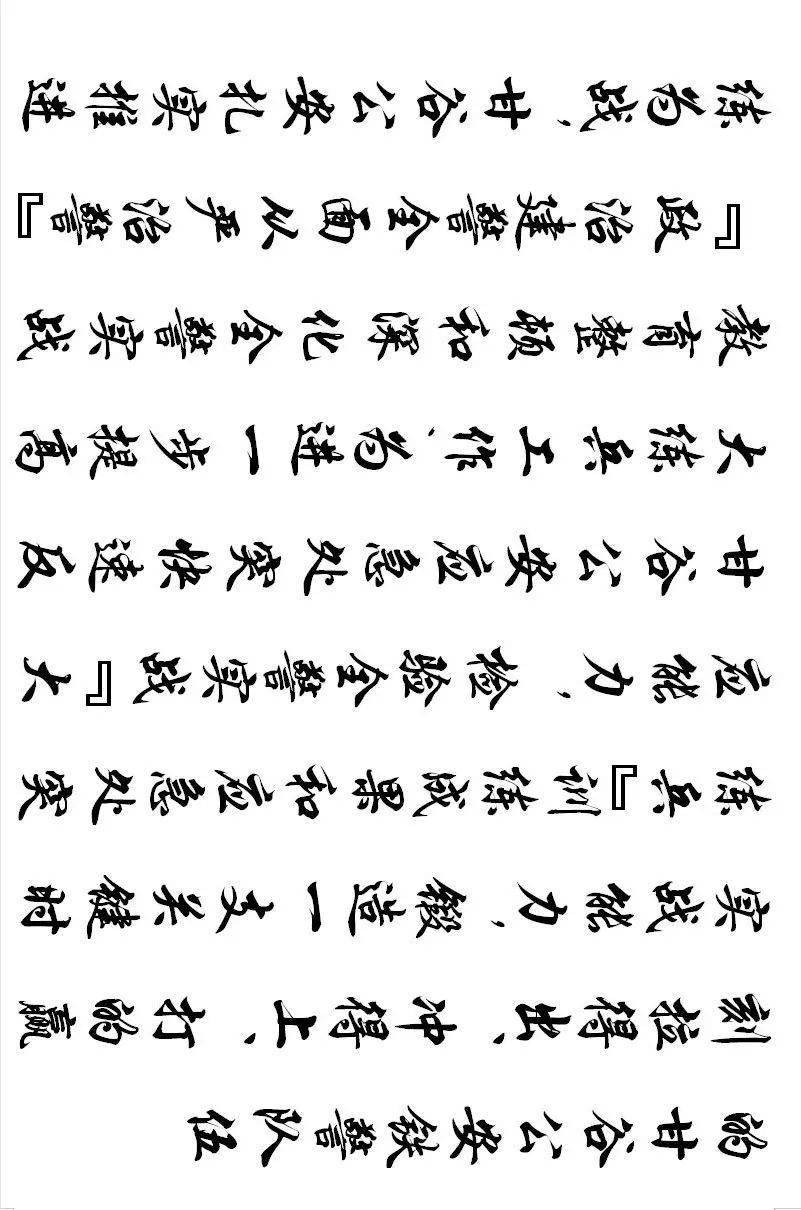 练为战，甘谷公安扎实推进
『政治建警全面从严治警』
教育整顿和深化全警实战
大练兵工作、为进一步提高
甘谷公安应急处突快速反
应能力，检验全警实战『大
练兵』训练成果和应急处突
实战能力，锻造一支关键时
刻拉得出、冲得上、打的赢
的甘谷公安铁警队伍